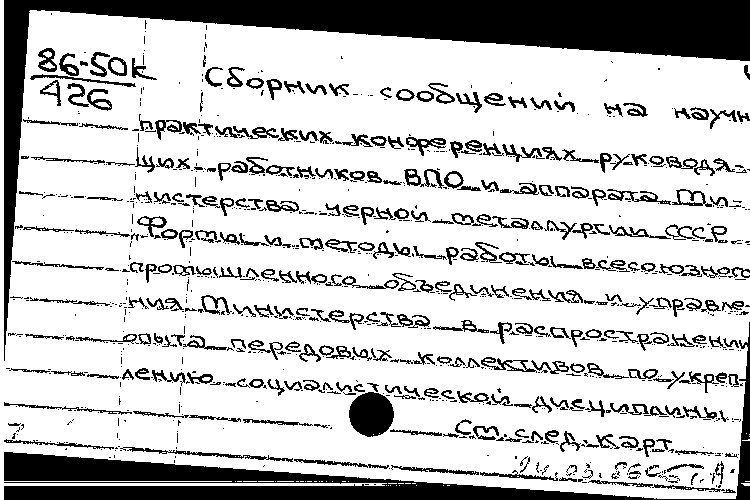 86-50к
426
Сборник сообщений на научн
практических конференциях руководя-
щих работников ВПО и аппарата Ми-
нистерства черной металлургии СССР
"Формы и методы работы всесоюзного
промышленного объединения и управле-
ния Министерства в распространении
опыта передовых коллективов по укреп-
лению социалистической дисциплины
См. след. карт
24.03.86